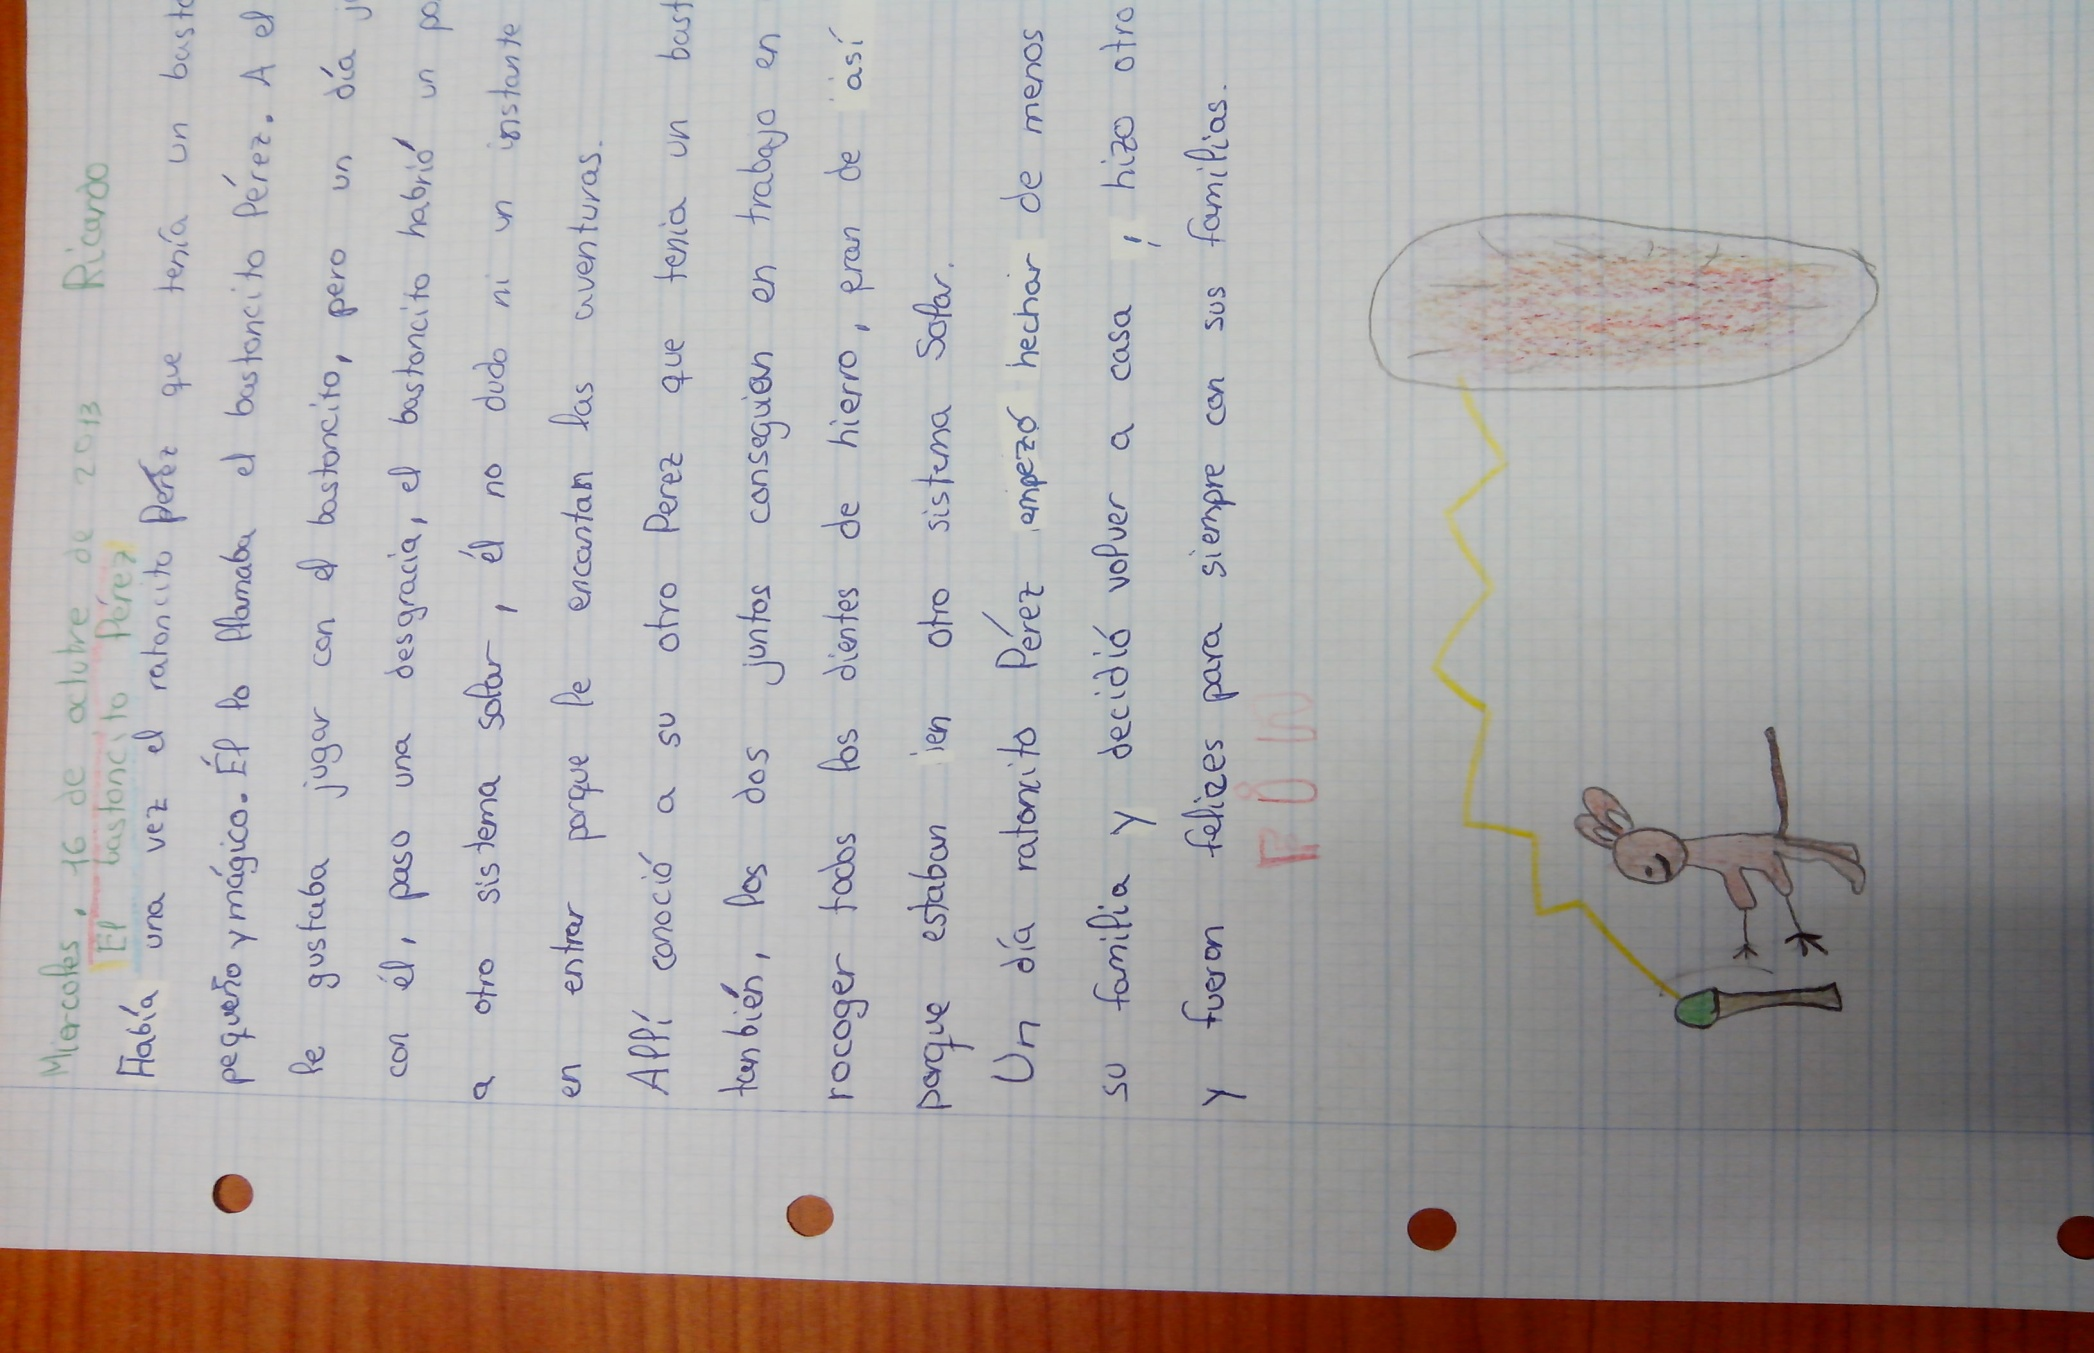 Miercoles, 16 de octubre de 2013 Ricardo
El bastoncito Pérez
Había una vez el ratoncito Pérez que tenía un basto
pequeño y mágico. Él lo llamaba el bastoncito Pérez. A el
le gustaba jugar con el bastoncito, pero un día j
con él, paso una desgracia, el bastoncito habrió un po
a otro sistema solar, él no dudo ni un instante
en entrar porque le encantan las aventuras.
Allí conoció a su otro Perez que tenia un bast
tanbién, los dos juntos conseguian en trabajo en
rocoger todos los dientes de hierro, eran de así
porque estaban en otro sistema Solar.
Un día ratoncito Pérez empezó hechar de menos
su familia y decidió volver a casa, hizo otro
y fueron felizes para siempre con sus familias.
FIN